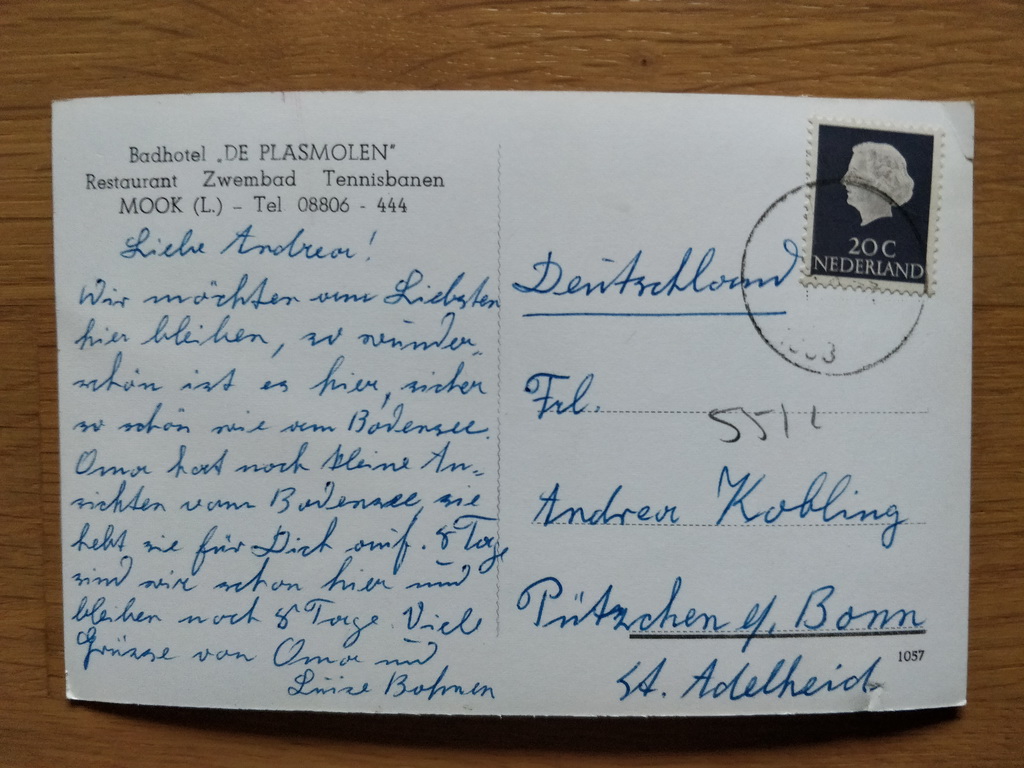 Badhotel „DE PLASMOLEN"
Restaurant Zwembad Tennisbanen
MOOK (L.) - Tel 08806 - 444
Liebe Andrea!
Wir möchten am Liebsten
hier bleiben, so wunder-
schön ist es hier, sicher
so schön wie am Bodensee.
Oma hat noch kleine An-
sichten vom Bodensee, sie
hebt sie für Dich auf. 8 Tage
sind wir schon hier und
bleiben noch 8 Tage. Viele
Grüsse von Oma und
Luise Bohnen
20 C
NEDERLAND
Deutschland
Frl.
5511
Andrea Kobling
Pützchen b/, Bonn
St. Adelheid
1057